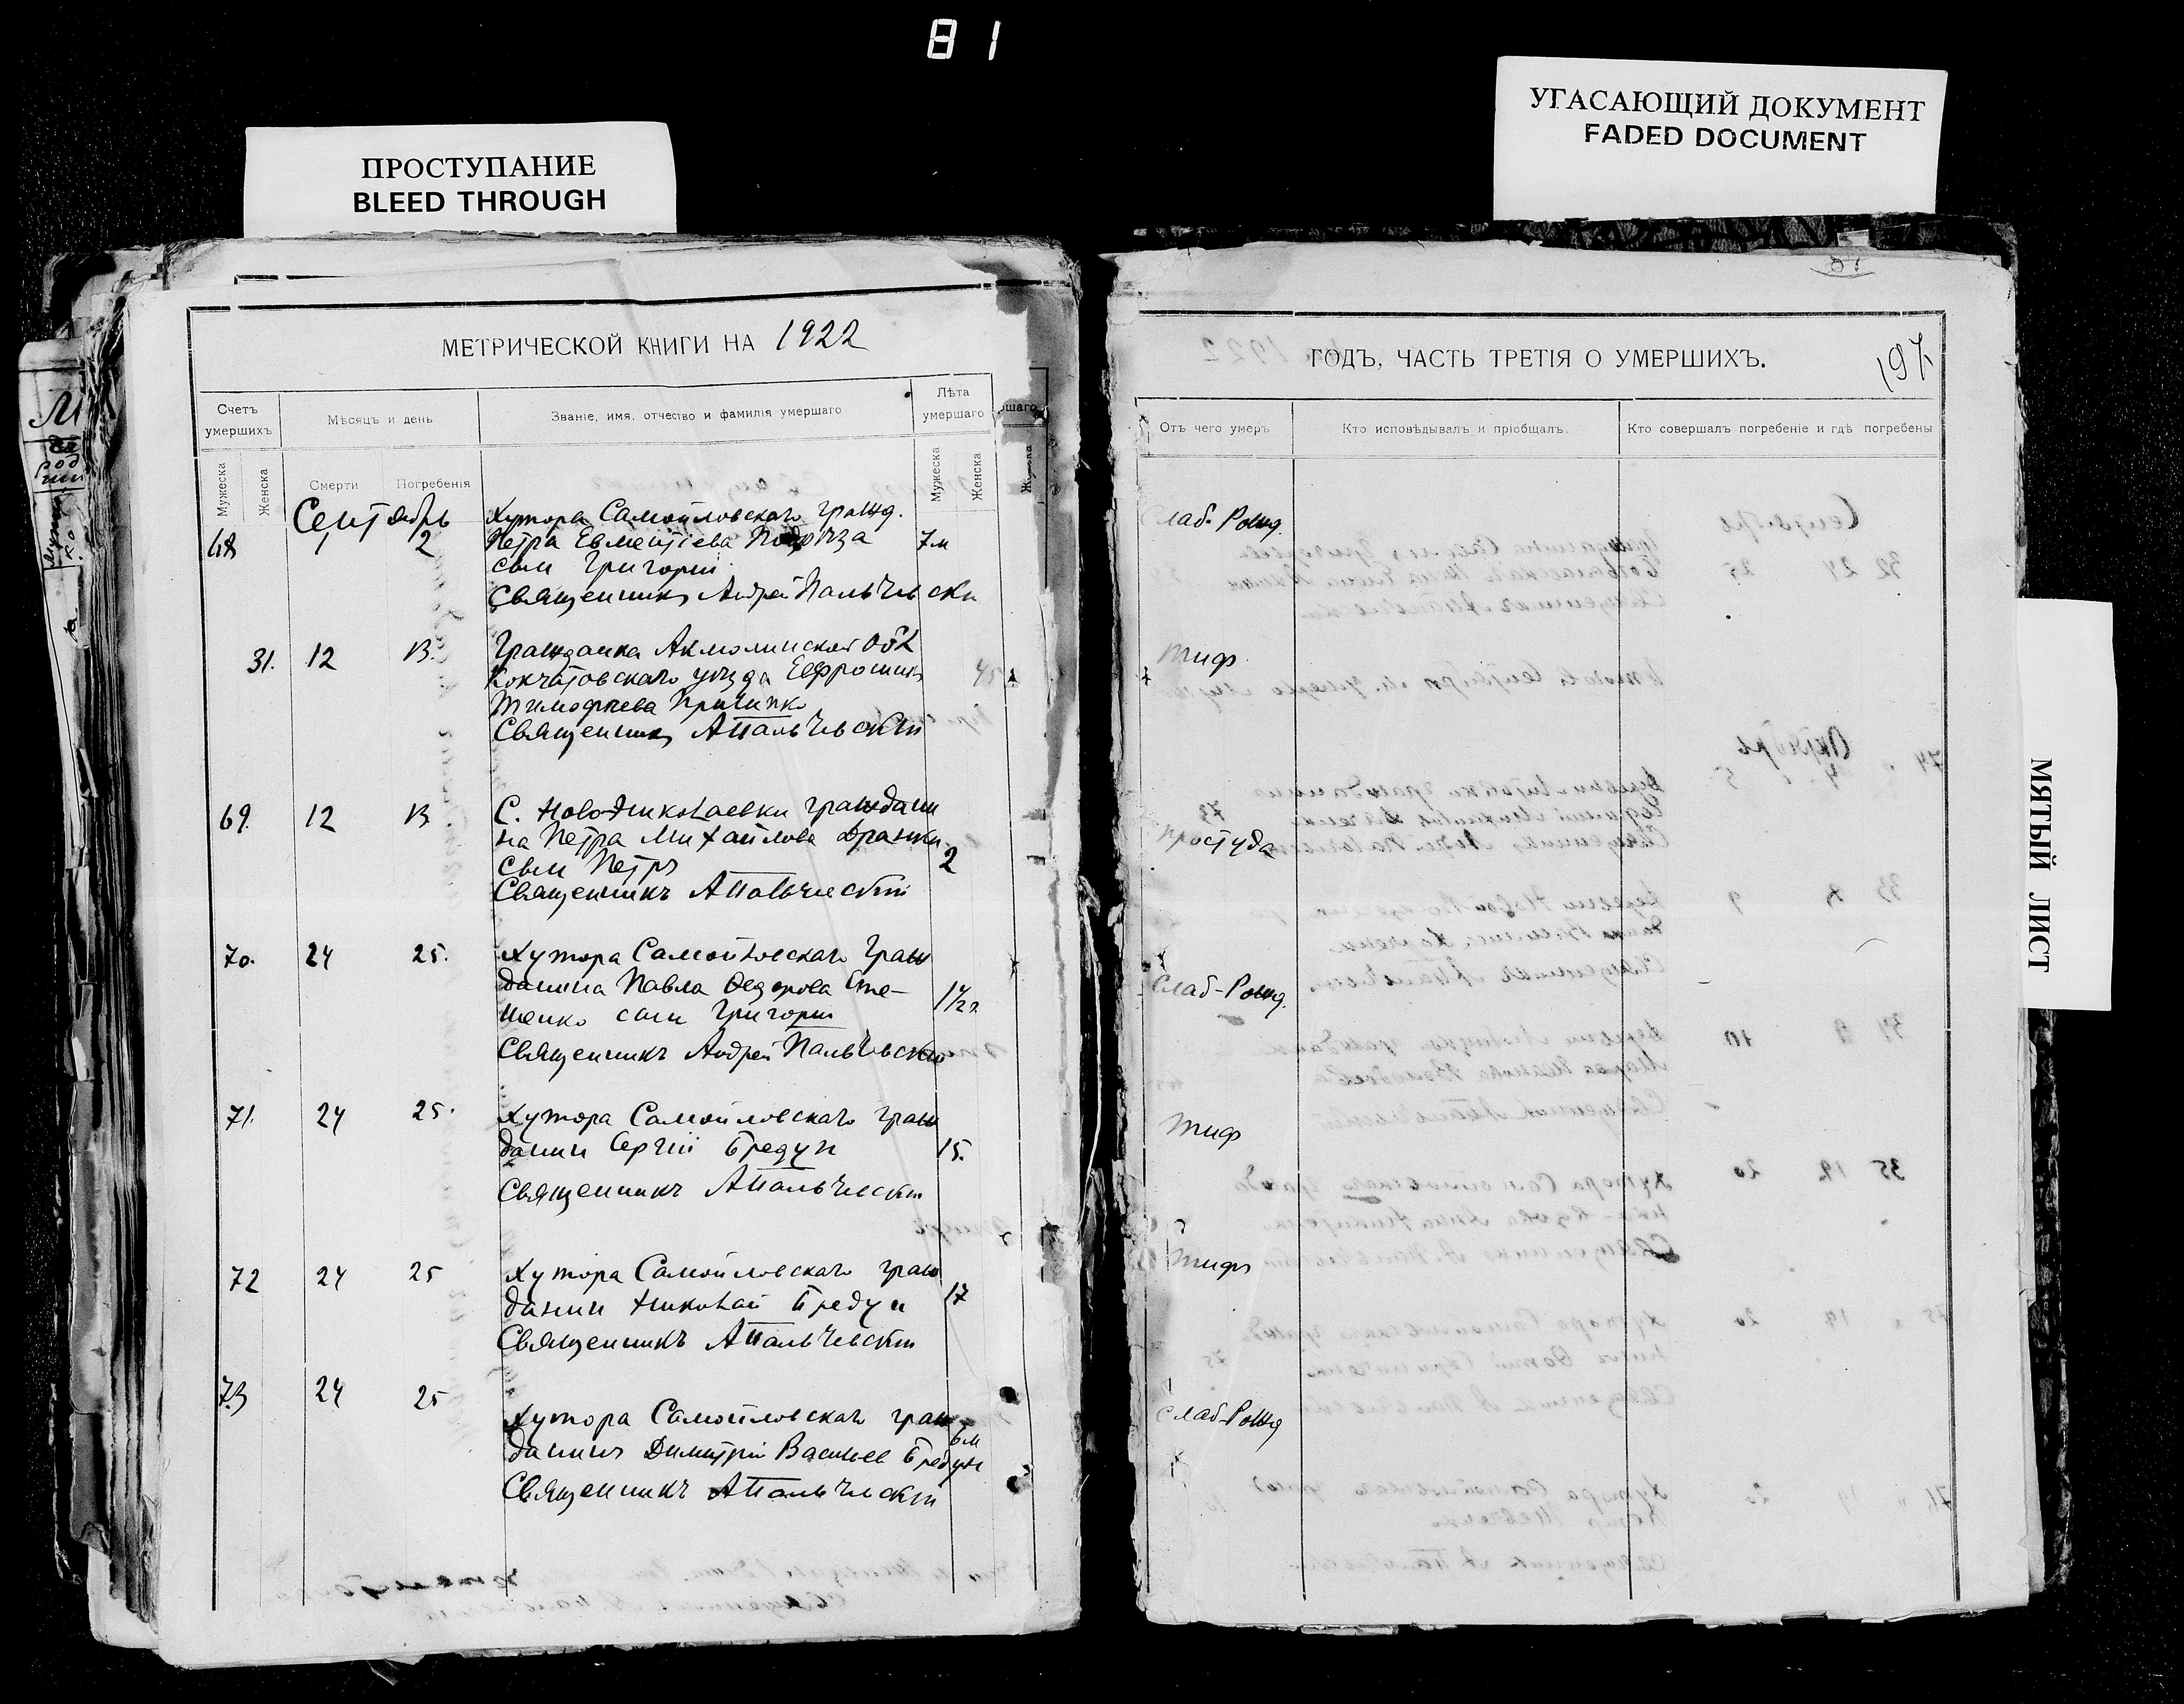 81
ПРОСТУПАНИЕ
BLEED THROUGH
УГАСАЮЩИЙ ДОКУМЕНТ
FADED DOCUMENT
МЯТЫЙ ЛИСТ
МЕТРИЧЕСКОЙ КНИГИ НА 1922
Счетъ умершихъ
Мѣсяцъ и день
Званіе, имя, отчество и фамилія умершаго
Лѣта умершаго
Мужеска
Женска
Смерти
Погребенія
Мужеска
Женска
Сентябрь
Хутора Самойловскаго гражд.
68 1 2 Петра Евментіева 7м
сын Григорій
Священникъ Андрей Пальчевски
31. 12 13. Гражданка Акмолинской Обл
Кокчатовскаго уезда Евфросинія
Тимофеева
Священникъ АПальчевскій
69. 12 13 С. Ново-Николаевки граждани
на Петра Михайлова
сын Петръ 2
Священникъ АПальчевскій
70. 24 25. Хутора Самойловскаго граж
данина Павла Федорова Сте-
ценко сын Григорій
Священникъ Андрей Пальчевский
71. 24 25. Хутора Самойловскаго граж
данин Сергій Бредун 15.
Священникъ АПальчевскій
72 24 25 Хутора Самойловскаго граж
данин Николай Бредун 17
Священникъ АПальчевскій
73 24 25
Хутора Самойловскаго граж
данинъ Димитрій Васильев Бредун 6м
Священникъ АПальчевскій
ГОДЪ, ЧАСТЬ ТРЕТІЯ О УМЕРШИХЪ.
197
Отъ чего умеръ
Кто исповѣдывалъ и пріобщалъ.
Кто совершалъ погребеніе и гдѣ погребены
Слаб. Рожд.
Тиф
Простуда
Слаб-Рожд.
Тиф
Тифъ
Слаб-Рожд